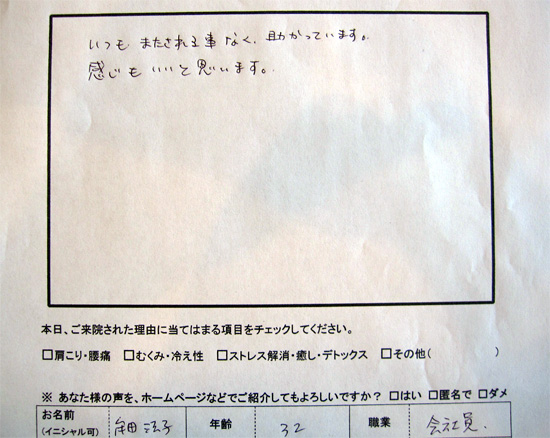 いつも またされる事なく、助かっています。
感じも いいと思います。
本日、ご来院された理由に当てはまる項目をチェックしてください。
□肩こり・腰痛 □むくみ・冷え性 □ストレス解消・癒し・デトックス □その他( )
※ あなた様の声を、ホームページなどでご紹介してもよろしいですか? □はい □匿名で □ダメ
お名前 年齢 32 職業 会社員.
(イニシャル可)